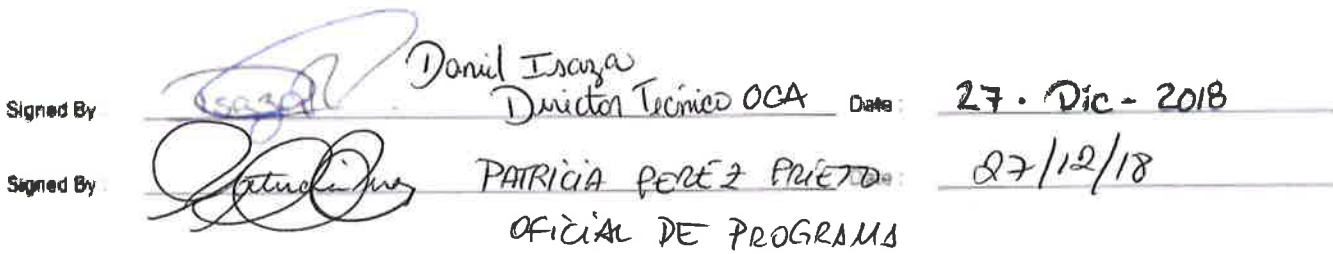 Daniel Isaza
Signed By Isaza Director Técnico OCA Date: 27. Dic - 2018
Signed By PATRICIA PERÉZ PRIETO Date: 27/12/18
OFICIAL DE PROGRAMA